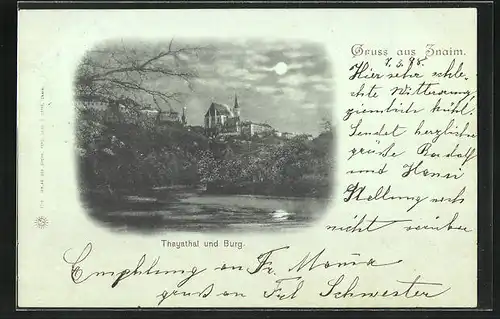 Gruss aus Znaim.
7.5.98.
Hier sehr schle-
chte Witterung
ziemlich kühl.
Sendet herzliche
grüße Rudolf
und Hansi
Stellung noch
nicht vorüber
Thayathal und Burg.
Empfehlung an Fr. Mama
gruß an Frl Schwester